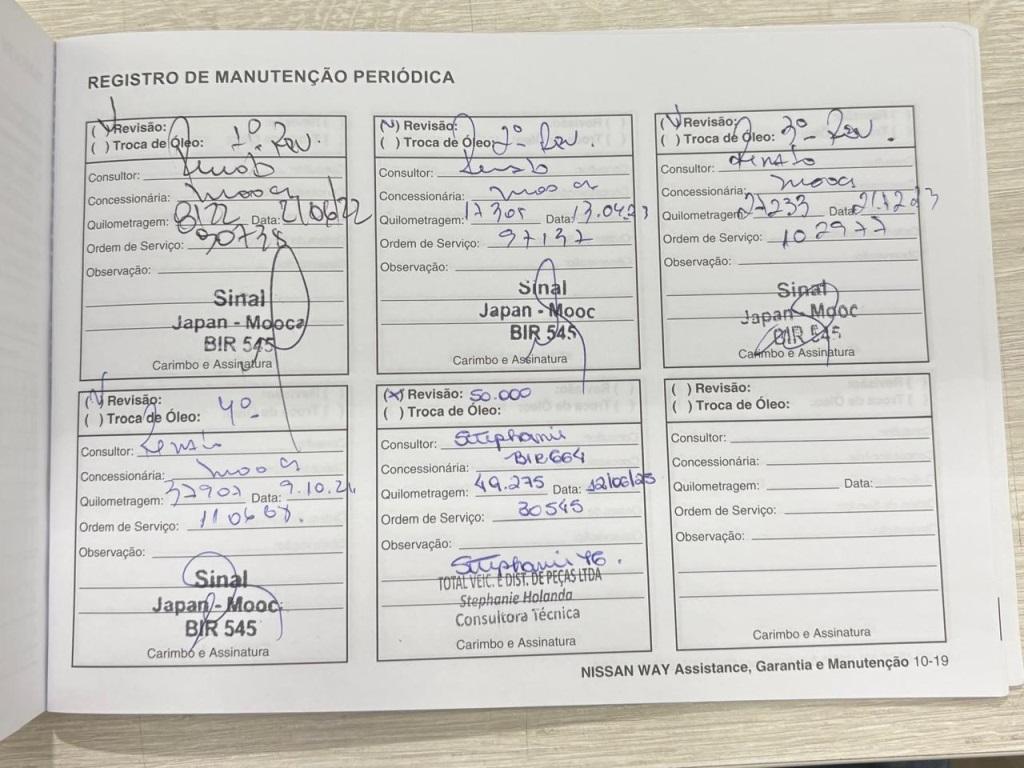 REGISTRO DE MANUTENÇÃO PERIÓDICA
( ) Revisão:
( ) Troca de Óleo: 1º Rev.
Consultor:
Concessionária: Mooca
Quilometragem: 8122 Data: 21/06/22
Ordem de Serviço: 90735
Observação:
Sinal
Japan - Mooca
BIR 545
Carimbo e Assinatura
( ) Revisão:
( ) Troca de Óleo: 2º Rev.
Consultor:
Concessionária: Mooca
Quilometragem: 17305 Data: 13.04.23
Ordem de Serviço: 97137
Observação:
Sinal
Japan - Mooc
BIR 545
Carimbo e Assinatura
( ) Revisão:
( ) Troca de Óleo: 3º Rev.
Consultor:
Concessionária: Mooca
Quilometragem: 27233 Data: 21.12.23
Ordem de Serviço: 102977
Observação:
Sinal
Japan - Mooc
BIR 545
Carimbo e Assinatura
( ) Revisão:
( ) Troca de Óleo: 4º
Consultor:
Concessionária: Mooca
Quilometragem: 37907 Data: 9.10.24
Ordem de Serviço: 110668.
Observação:
Sinal
Japan - Mooc
BIR 545
Carimbo e Assinatura
(x) Revisão: 50.000
( ) Troca de Óleo:
Consultor: Stephanie
BIR 664
Concessionária:
Quilometragem: 49.275 Data: 12/06/25
Ordem de Serviço: 30545
Observação:
Stephanie
TOTAL VEIC. E DIST. DE PEÇAS LTDA
Stephanie Holanda
Consultora Técnica
Carimbo e Assinatura
( ) Revisão:
( ) Troca de Óleo:
Consultor:
Concessionária:
Quilometragem: Data:
Ordem de Serviço:
Observação:
Carimbo e Assinatura
NISSAN WAY Assistance, Garantia e Manutenção 10-19